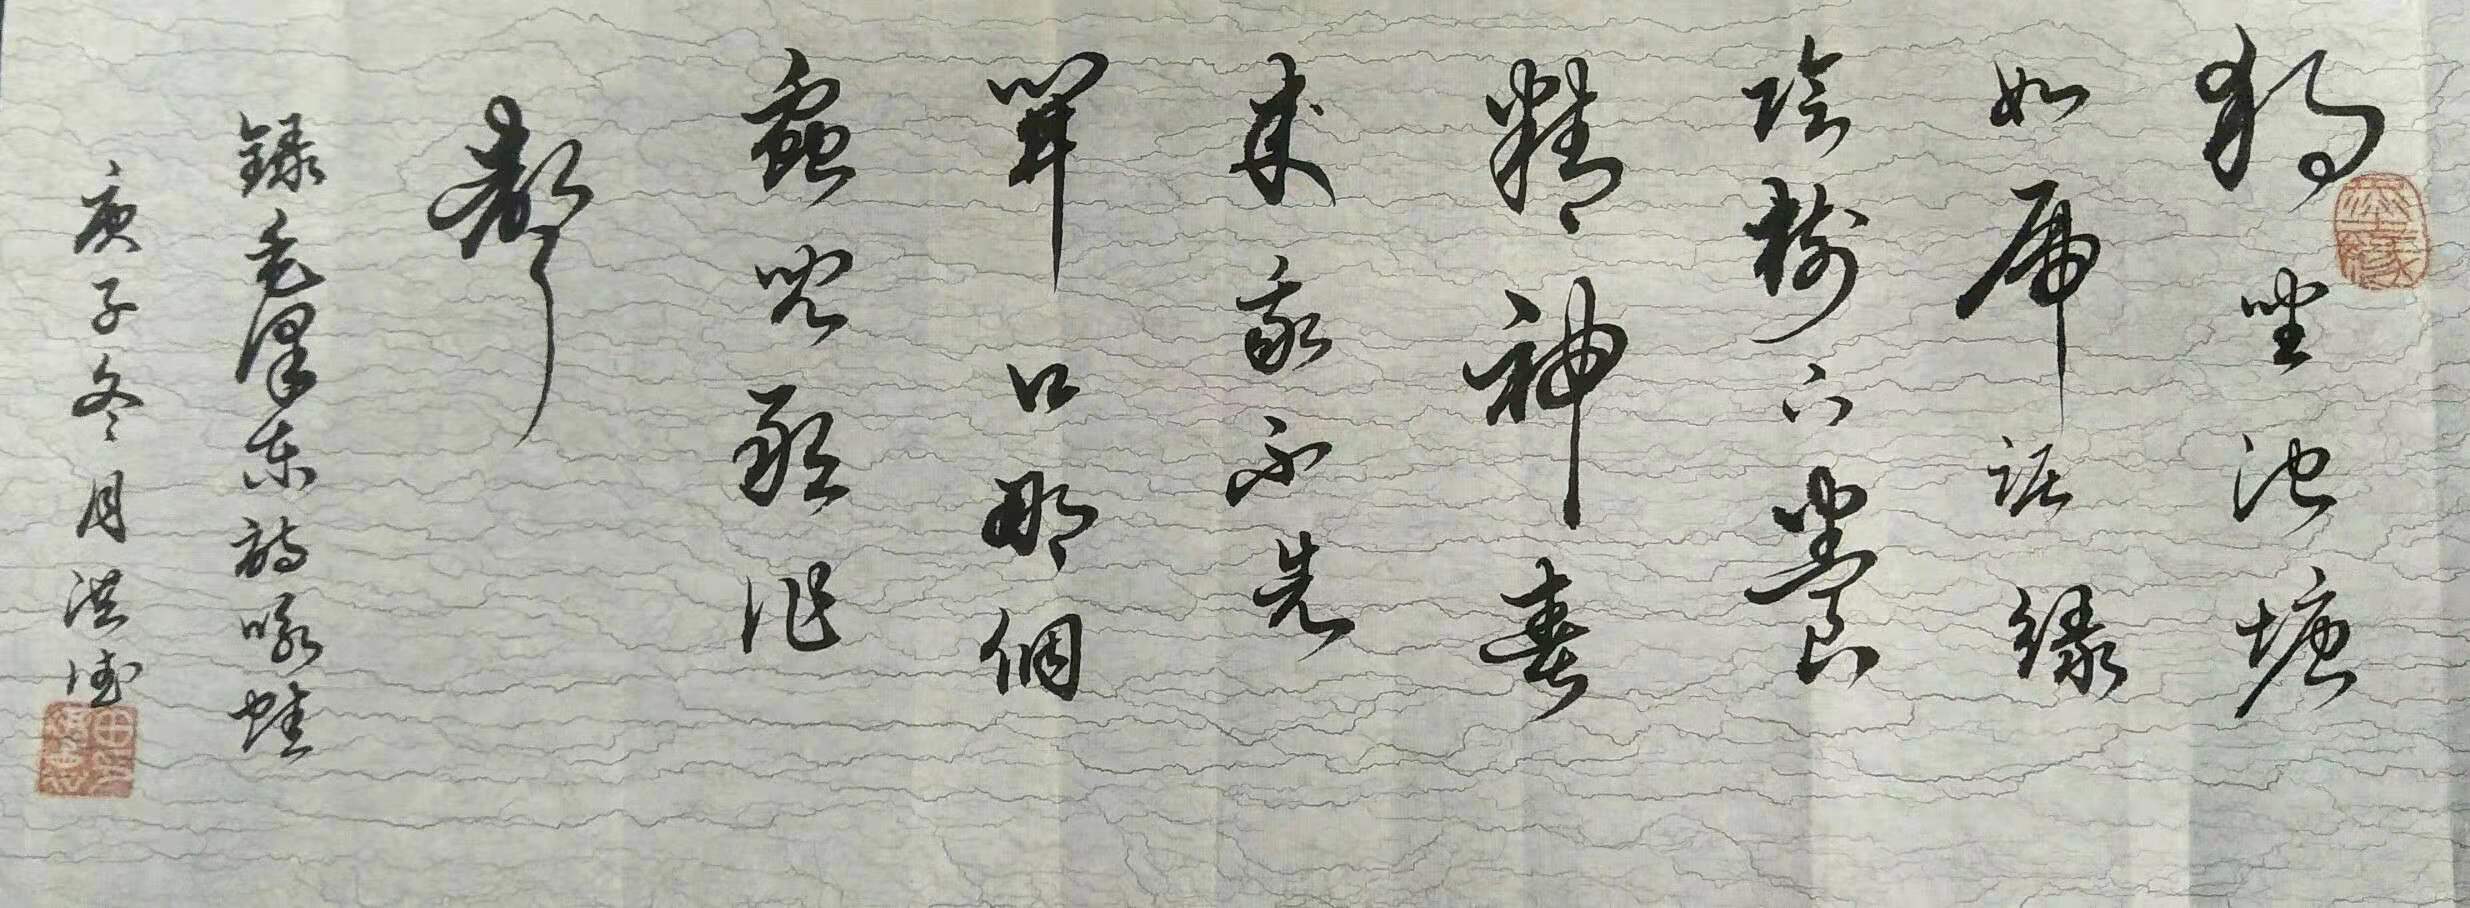 独坐池塘
如虎踞绿
阴树下养
精神春
来我不先
开口那个
虫儿敢作
声
录毛泽东诗咏蛙
庚子冬月洪德